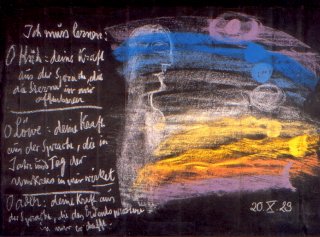 Ich muss lernen:
O Kuh: deine Kraft
aus der Sprache, die
die Sterne in mir
offenbaren
O Löwe: deine Kraft
aus der Sprache, die in
Jahr und Tag der
Umkreis in mir wirket
deine Kraft aus
der Sprache, die das
in mir
20.X.23